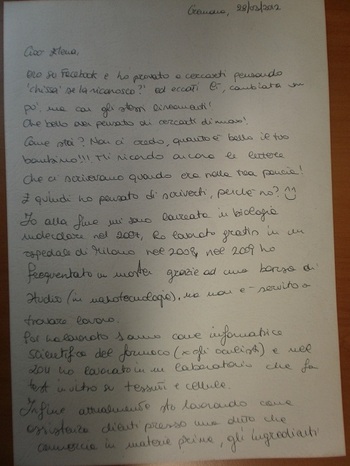 28/03/2012
Ciao Elena,
ero su Facebook e ho provato a cercarti pensando
"chissà se la riconosco?" ed eccoti lì, cambiata un
po', ma con gli stessi lineamenti!
Che bello aver pensato di cercarti di nuovo!
Come stai? Non ci credo, quanto è bello il tuo
bambino!!! Mi ricordo ancora le lettere
che ci scrivevamo quando ero nella tua
E quindi ho pensato di scriverti, perché no? ☺
Io alla fine mi sono laureata in biologia
molecolare nel 2007, ho lavorato gratis in un
ospedale di Milano nel 2008, nel 2009 ho
frequentato un master grazie ad una borsa di
studio (in nanotecnologie), ma non è servito a
trovare lavoro.
Poi ho lavorato 1 anno come informatrice
scientifica del farmaco (x gli oculisti) e nel
2011 ho lavorato in un laboratorio che fa
test in vitro su tessuti e cellule.
Infine attualmente sto lavorando come
assistenza clienti presso una ditta che
commercia in materie prime, gli ingredienti